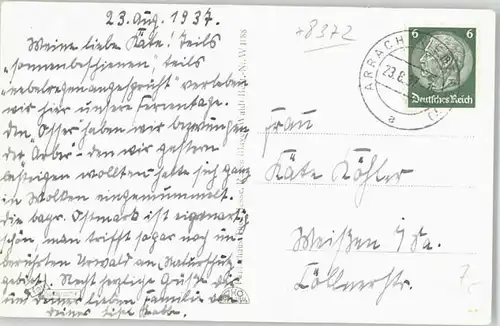 23. Aug. 1937.
Meine liebe Käte! Teils
"sonnenbeschienen" teils
"nebelregenangesprüht" verleben
wir hier unsere Ferientage.
Den "Osser" haben wir bezwungen
der "Arber" - den wir gestern
besteigen wollten hatte sich ganz
in Wolken eingemummelt.
Die bayr. Ostmark ist eigenartig
schön, man trifft sogar noch un-
berührten Urwald an (Naturschutz-
gebiet). Recht herzliche Grüße dir
und deiner lieben Familie von
deiner
+8372
ARRACH
23.8.
a
6 6
Deutsches Reich
Frau
Käte Köhler
Meißen i/Sa.
Zöllnerstr.